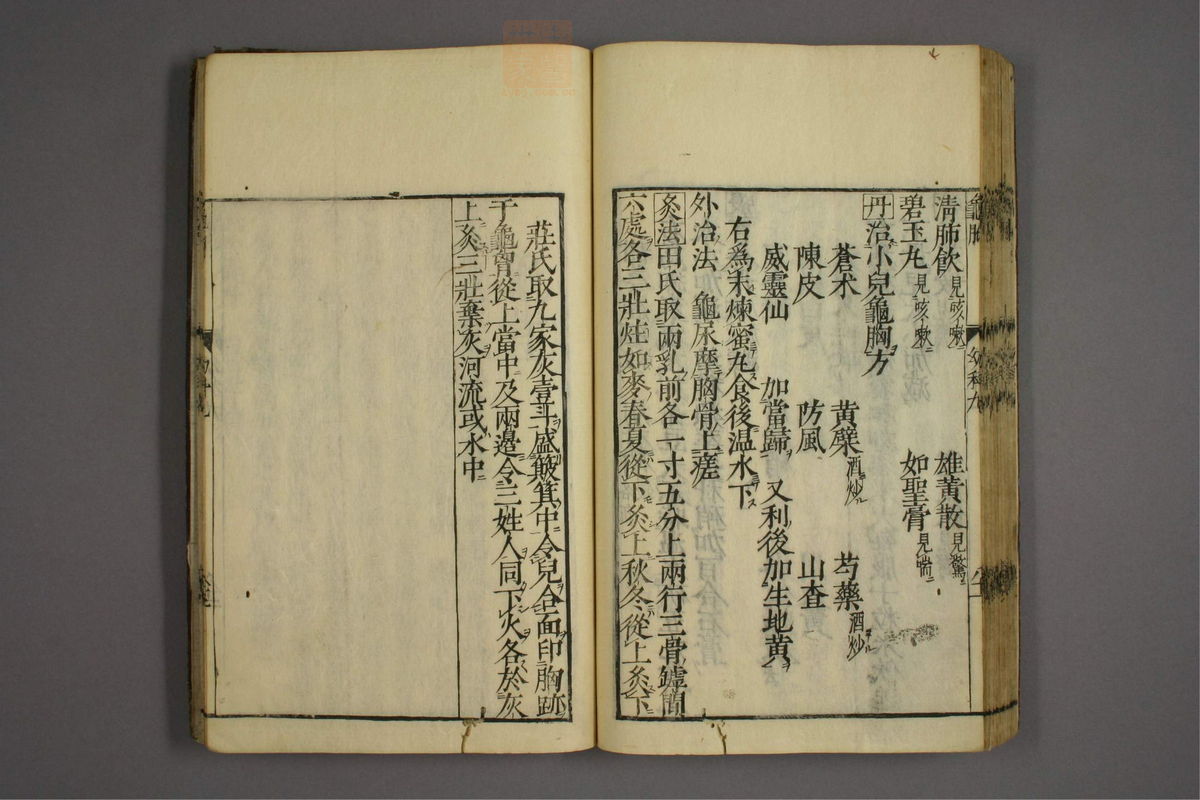 龜胸
清肺飲見咳嗽 雄黃散見驚
碧玉丸見咳嗽 如聖膏見喘
丹治小兒龜胸方
蒼朮 黃檗酒炒 芍藥酒炒
陳皮 防風 山査
威靈仙 加當歸 又利後加生地黃
右為末煉蜜丸食後温水下
外治法 龜尿摩胸骨上瘥
灸法田氏取兩乳前各一寸五分上兩行三骨罅間
六處各三壯炷如麥春夏從下灸上秋冬從上灸下
莊氏取九家灰壹斗盛簸箕中令兒合面印胸跡
于龜胷從上當中及兩邉令三姓人同下火各於灰
上灸三壯棄灰河流或水中